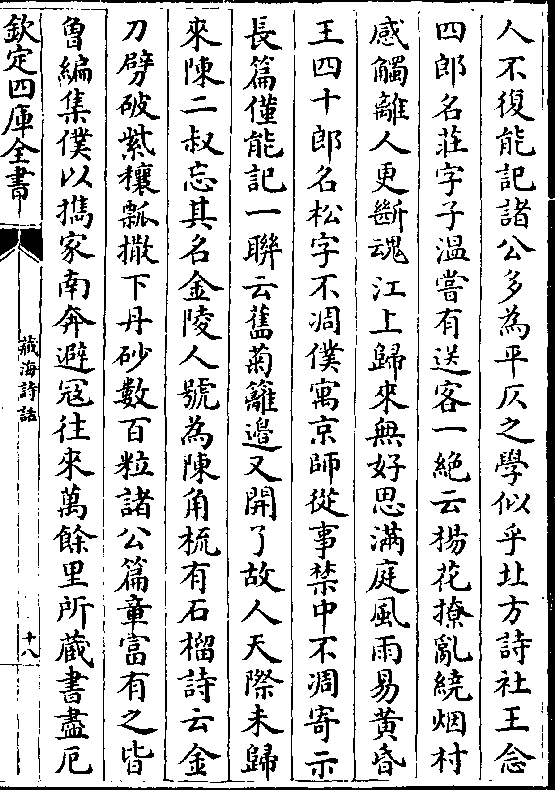 人不復能記諸公多為平仄之學似乎北方詩社王念
四郎名莊字子溫嘗有送客一絶云楊花撩亂繞烟村
感觸離人更斷魂江上歸來無好思滿庭風雨易黃昏
王四十郎名松字不凋僕寓京師從事禁中不凋寄示
長篇僅能記一聯云舊菊籬邉又開了故人天際未歸
來陳二叔忘其名金陵人號為陳角梳有石榴詩云金
刀劈破紫穰瓢撒下丹砂數百粒諸公篇章富有之皆
曾編集僕以攜家南奔避冦往來萬餘里所藏書盡厄
欽定四庫全書
藏海詩話
十八